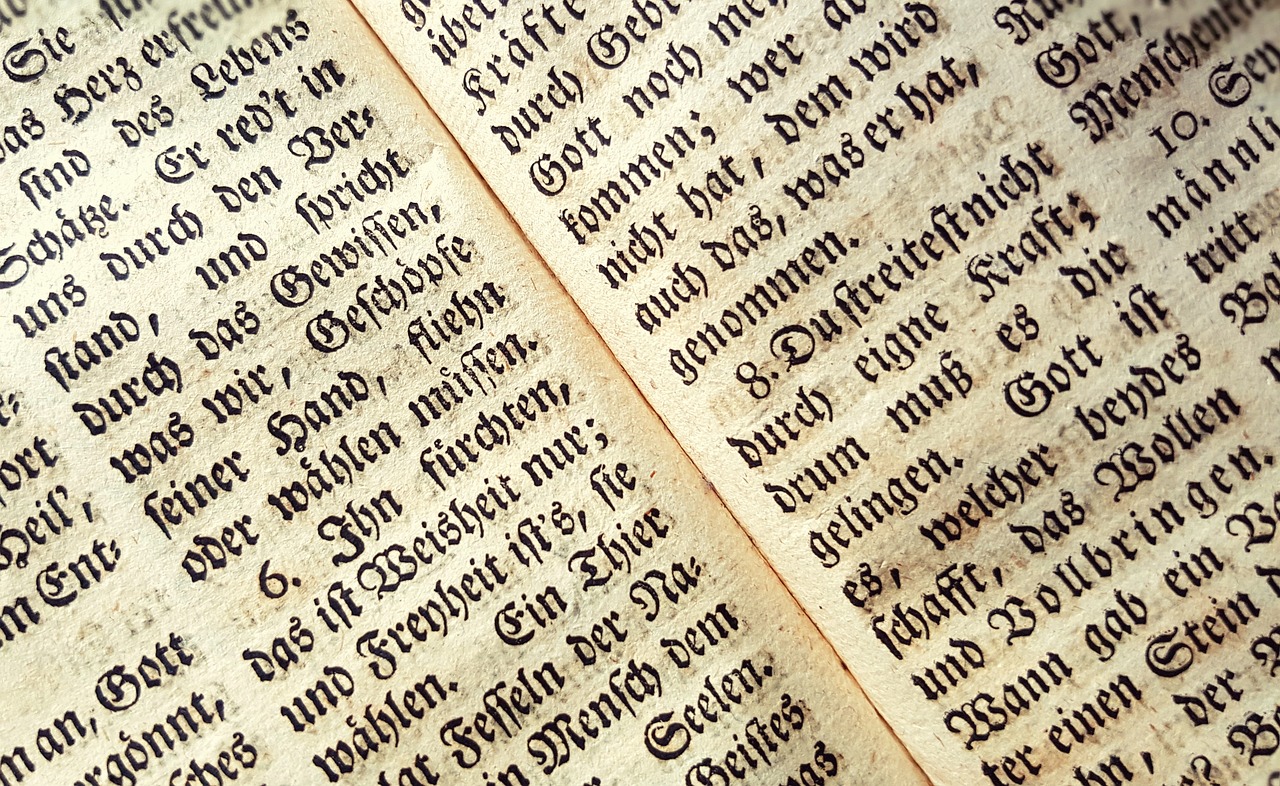 Sie
das Herz erfreun
ſind des Lebens
Schätze. Er red't in
uns durch den Ver-
ſtand, und ſpricht
durch das Gewiſſen,
was wir, Geſchöpfe
ſeiner Hand, fliehn
oder wählen müſſen.
6. Ihn fürchten,
das iſt Weisheit nur;
und Freyheit iſt's, ſie
wählen. Ein Thier
Feſſeln der Na-
Menſch dem
Seelen.
Geiſtes
Heil',
Ent-
man, Gott
Kräfte
durch
Gott noch
kommen; wer
nicht hat, dem wird
auch das, was er hat,
genommen.
8. Du ſtreiteſt nicht
durch eigne Kraft;
drum muß es dir
gelingen. Gott iſt
es, welcher beydes
ſchafft, das Wollen
und Vollbringen.
Wann gab ein
einen Stein
der
Gott,
Menſchen
10.
männli
tritt